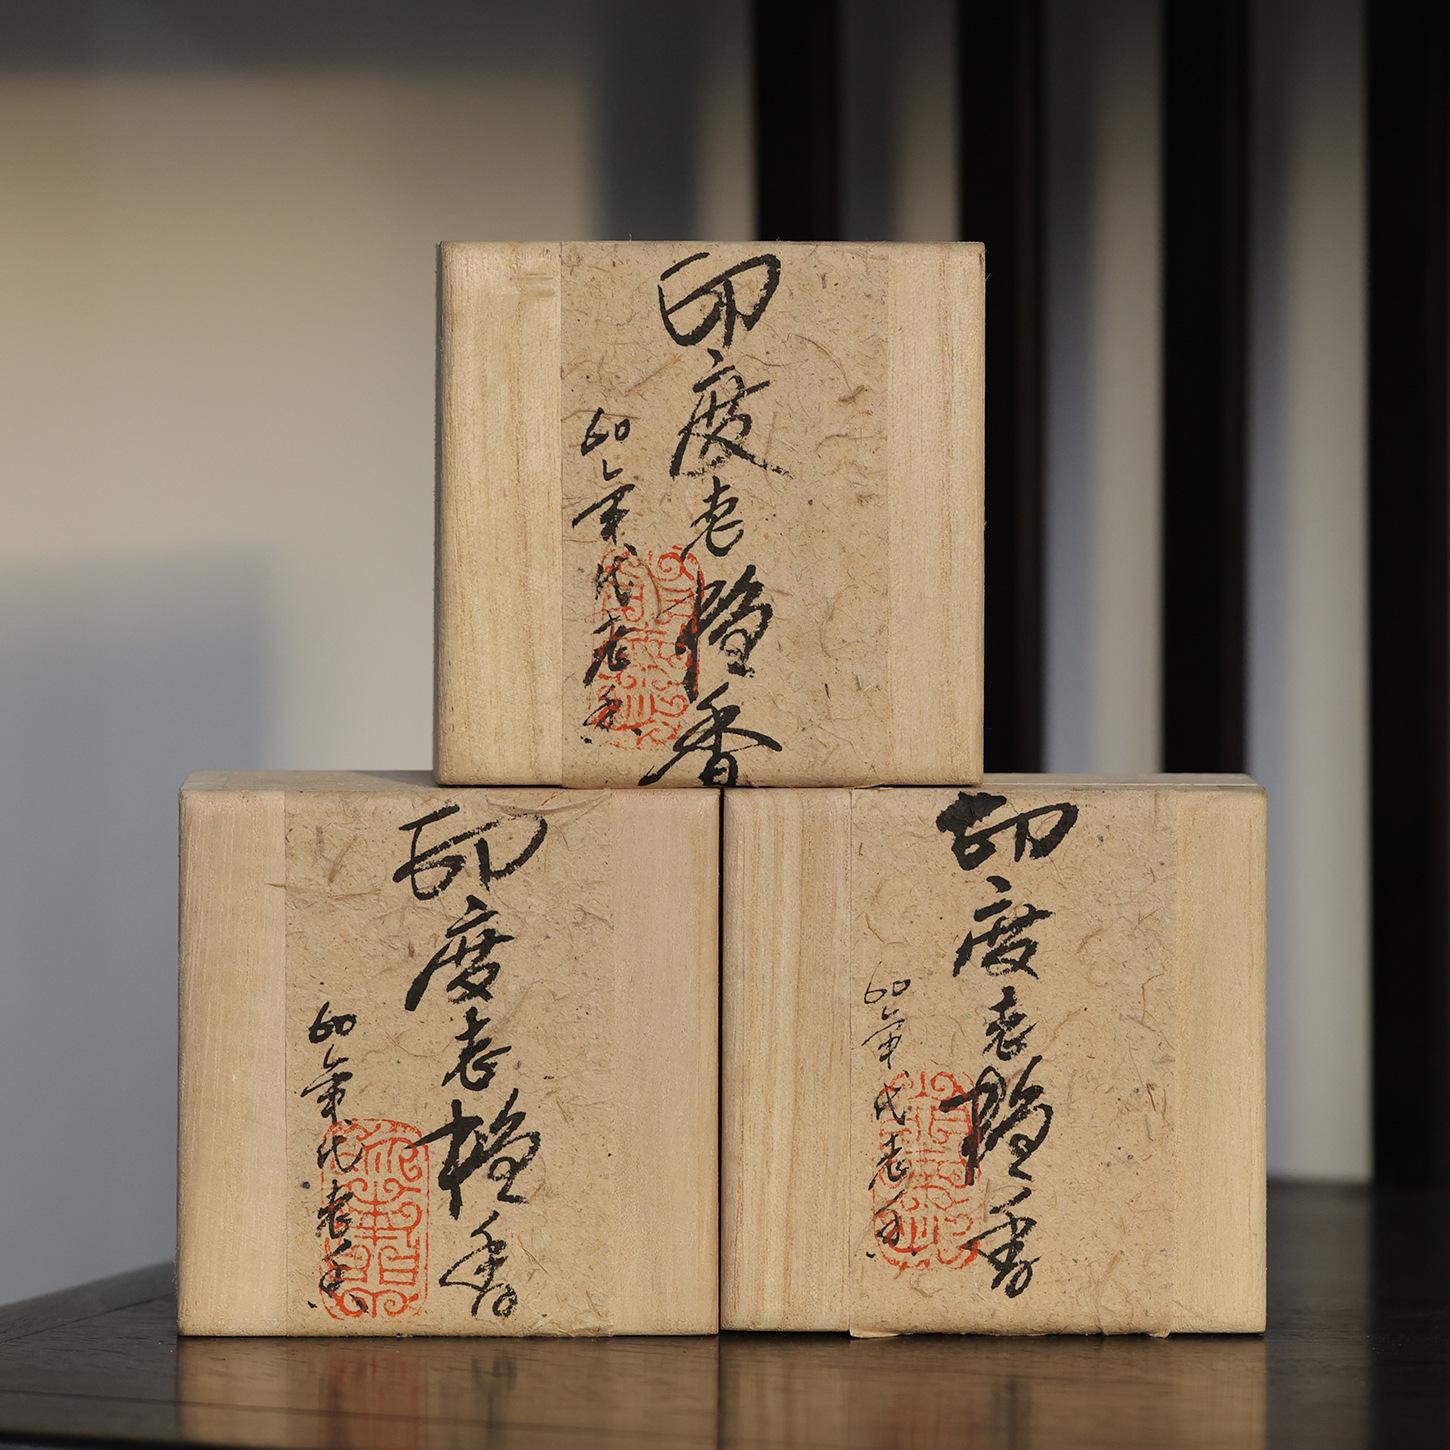 印度老檀香
60年代老香
印度老檀香
60年代老香
印度老檀香
60年代老香